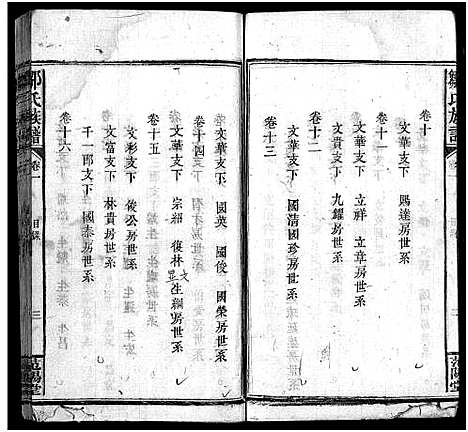 鄒氏族譜
卷一
目錄
二
范陽堂
卷十
文華支下 賜達房世系
卷十一
文華支下 立祥 立章房世系
文貴支下 九耀房世系
卷十二
文華支下 國清國珍房世系
卷十三
文華支下 國英 國俊 國榮房世系
卷十四
文華支下 宗紹 復林 文星生綱房世系
卷十五
文彩支下 俊公房世系
文富支下 林貴房世系
千一郎支下 國泰房世系
卷十六
鄒氏族譜
卷一
目錄
三
范陽堂